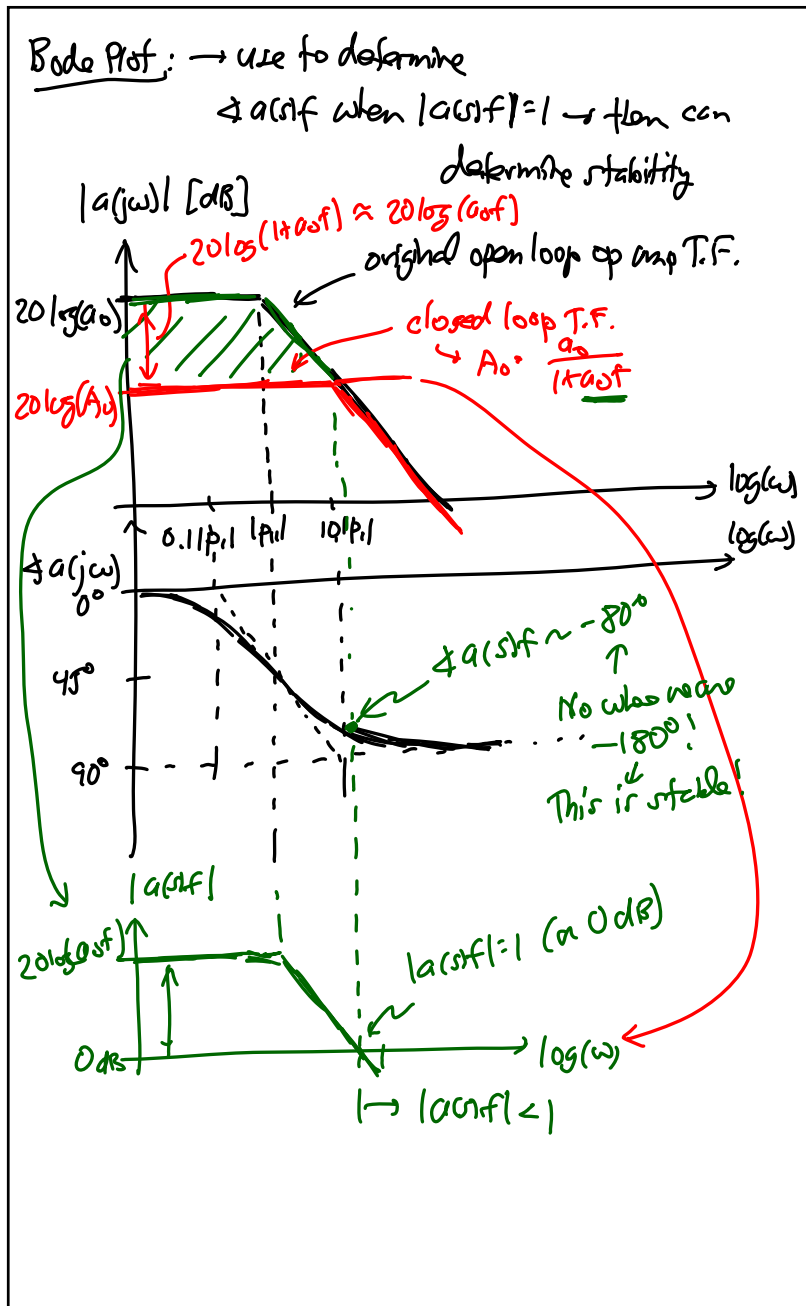 Bode Plot: → use to determine
∡ a(s)f when |a(s)f|=1 → then can
determine stability
|a(jω)| [dB]
20log(1+a₀f) ≈ 20log(a₀f)
original open loop op amp T.F.
20log(a₀)
closed loop T.F.
↳ A₀ = a₀/(1+a₀f)
20log(A₀)
log(ω)
0.1|p₁| |p₁| 10|p₁|
log(ω)
∡ a(jω)
0°
∡ a(s)f ~ -80°
45°
No where near
-180°!
90°
This is stable!
|a(s)f|
20log(a₀f)
|a(s)f|=1 (or 0dB)
0dB
log(ω)
|→ |a(s)f| < 1